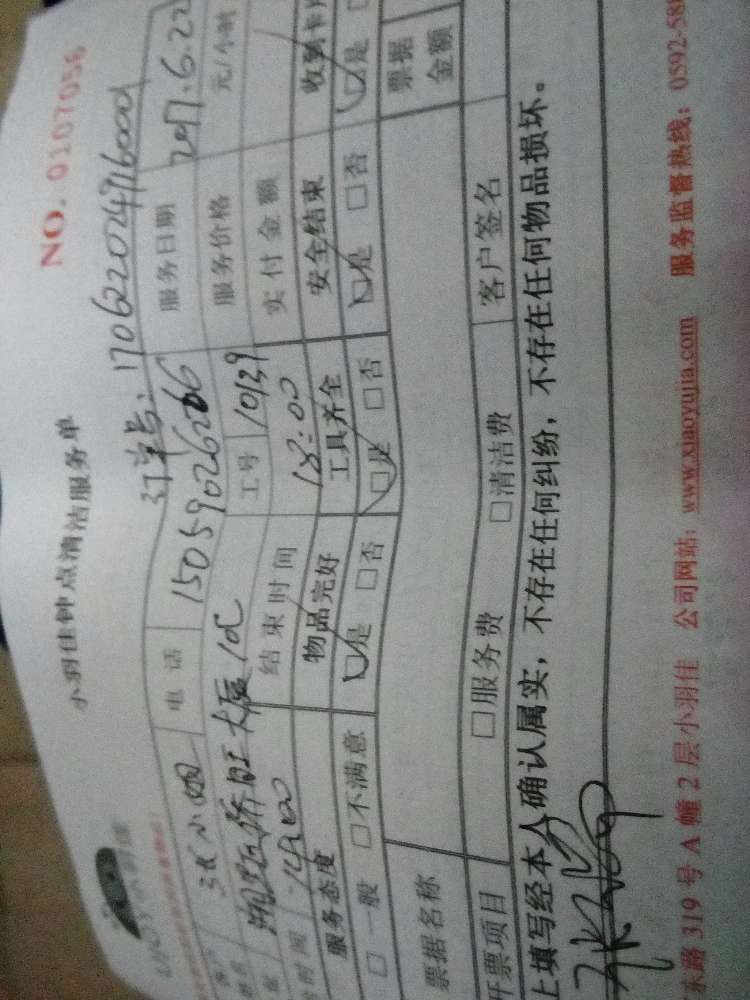 NO. 0107056
小羽佳钟点清洁服务单
订单号:
张小姐 电话 15059026266 服务日期 2017.6.22
大厦10C 工号 10139 服务价格 元/小时
时间 14:00 结束时间 18:00 实付金额
服务态度 物品完好 工具齐全 安全结束 收到卡
□一般 □不满意 □是 □否 □是 □否 □是 □否 □是
票据名称 票据金额
开票项目 □服务费 □清洁费 客户签名
上填写经本人确认属实,不存在任何纠纷,不存在任何物品损坏。
东路319号A幢2层小羽佳 公司网站:www.xiaoyujia.com 服务监督热线:0592-58